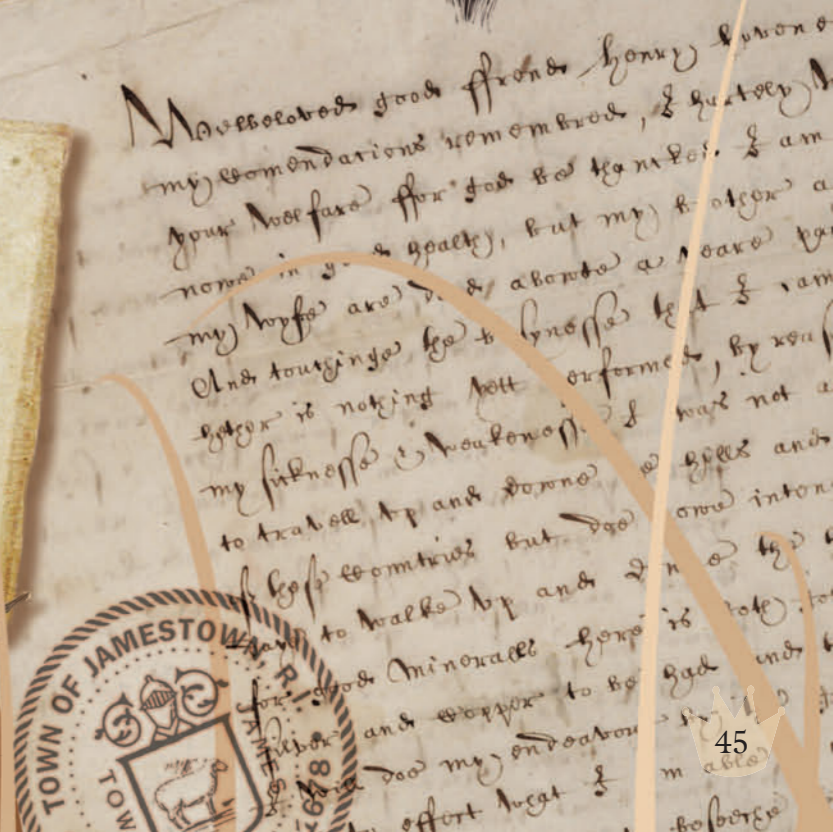 Welbeloved good ffrend Henry
my comendations remembred, I hartely
your welfare ffor god be thanked I am
nowe in good healthe, but my brother a
my wyfe are ded aboute a yeare pa
And touchinge the busynesse that I cam
hether is nothing yett performed, by reas
my sicknesse & weaknesse I was not a
to travell vp and downe the hills and
these countries but doe nowe inten
to walke vp and downe the
good Mineralls here is both
silver and copper to be had and
doe my endeavour by the
effort what I am able
beseeche
TOWN OF JAMESTOWN, R.I.
JAMES
1678
TOW
45